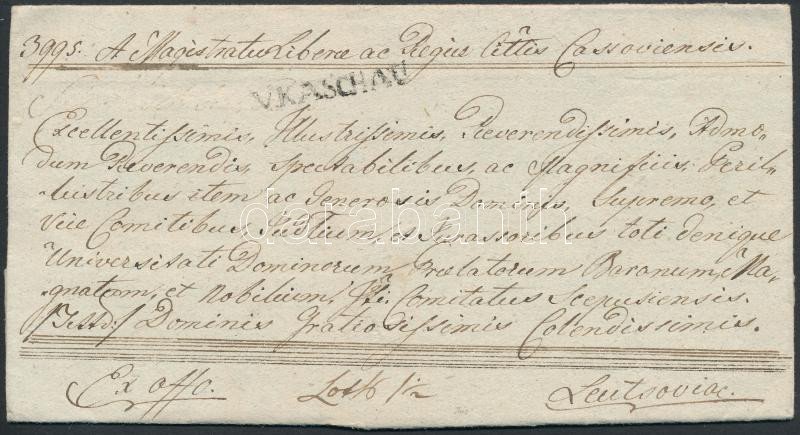 3995. A Magistratu Liberæ ac Regiæ Cittis Cassoviensis.
V.KASCHAU
Excellentissimis, Illustrissimis, Reverendissimis, Admo-
dum Reverendis, Spectabilibus, ac Magnificis, Peril-
lustribus item ac Generosis Dominis, Supremo, et
Vice Comitibus, Judlium, et Jurassoribus toti denique
Universitati Dominorum Prælatorum Baronum, Ma-
gnatum, et Nobilium, Comitatus Scepusiensis.
Dominis Gratiosissimis Colendissimis.
Ex offo. Loth 1/2 Leutsoviæ.
darabanth